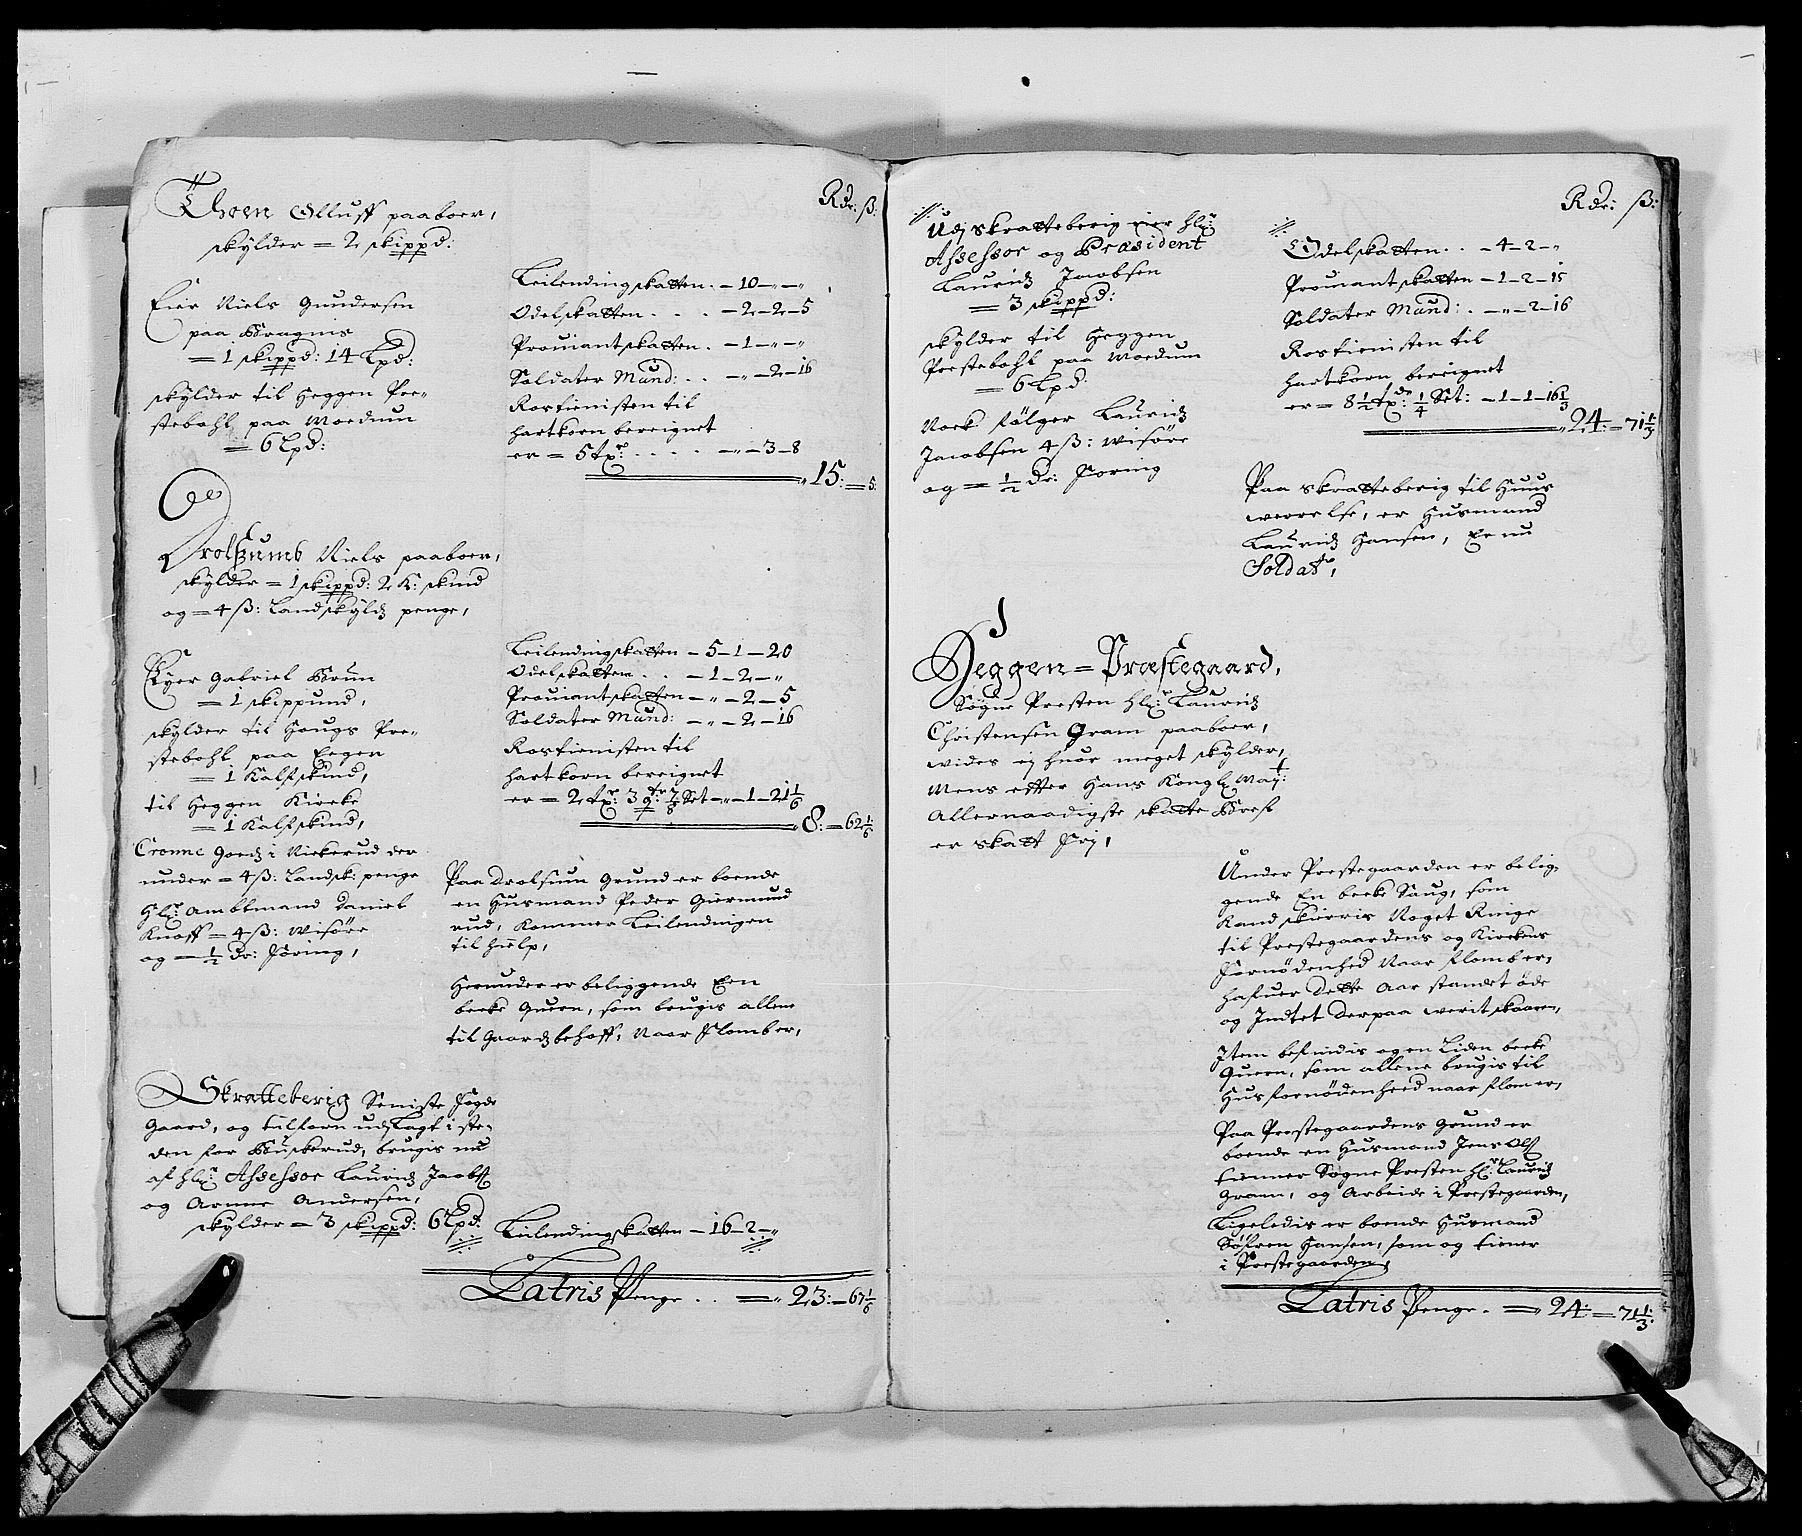 Rdr: ß:
Thoen Olluff paaboer,
skylder = 2 skippd:
Eier Niels Gundersen
paa Bragnis
= 1 skippd: 14 Lpd:
skylder til Heggen Pre-
stebohl paa Moedum
= 6 Lpd:
Leilendingskatten. - 10 - „ - „
Odelskatten . . . - 2 - 2 - 5
Prouiantskatten. - 1 - „ - „
Soldater Mund: . . - „ - 2 - 16
Rostienisten til
hartkorn bereignet
er = 5 tr: . . . . - „ - 3 - 8
15: = 5:
Drolszumb Niels paaboer,
skylder = 1 skippd: 2 K: skind
og = 4 ß: Landskyldz penge,
Eyer Gabriel Brun
= 1 skippund,
skylder til Hougs Pre-
stebohl paa Eegen
= 1 Kalfskind,
til Heggen Kircke
= 1 Kalfskind,
Cronne Goedz i Vikerud der
under = 4 ß: Landsk: penge
Hr: Ambtmand Daniel
Knoff = 4 ß: Wisöre
og = 1/2 Dr: Föring,
Leilendingskatten - 5 - 1 - 20
Odelskatten . . - 1 - 2 - „
Prouiantskatten - „ - 2 - 5
Soldater Mund: - „ - 2 - 16
Rostienisten til
hartkorn bereignet
er = 2 tr: 3 qtr 7/8 Set - „ - 1 - 21 1/6
8: = 62 1/6
Paa Drolsum Grund er boende
en Husmand Peder Giermund
rud, kommer Leilendingen
til hielp,
Herunder er beliggende Een
becke Quern, som brugis allene
til Gaardzbehoff, Naar Flomber,
Skratteberig Seniste Fogde
Gaard, og tilforn udlagt i ste-
den for Buskerud, brugis nu
af Hr: Assessor Lauridz Jacobs:
og Arnne Andersen,
skylder = 3 skippd: 6 Lpd:
Leilendingskatten - 16 - 2 - „
Latris Penge . = „ 23: = 67 1/6
Rdr: ß:
Udj Skratteberig eier Hr:
Assessor og Præsident
Lauridz Jacobsen
= 3 skippd:
skylder til Heggen
Prestebohl paa Moedum
= 6 Lpd:
Noch fölger Lauridz
Jacobsen 4 ß: Wisöre
og = 1/2 Dr: Foring
Odelskatten . . - 4 - 2 - „
Prouiantskatten - 1 - 2 - 15
Soldater Mund: . - „ - 2 - 16
Rostienisten til
hartkorn bereignet
er = 8 1/2 tr: 1/4 Set: - 1 - 1 - 16 1/3
24: = 71 1/3
Paa Skratteberig til Huus
werrelse, er Husmand
Lauridz Hansen, Er nu
Soldat,
Heggen = Præstegaard,
Sogne Presten Hr: Lauridz
Christensen Gram paaboer,
wides ej huor meget skylder,
Mens effter Hans Kongl: May:
Allernaadigste skatte Bref
er skatt frj,
Under Prestegaarden er belig-
gende En becke Saug, som
kand skierris Noget Ringe
til Prestegaardens og Kirckens
Fornödenhed Naar flomber,
hafuer dette Aar standet öde
og Indtet derpaa werit skaaren,
Item befindis og en Liden becke
Quern, som allene brugis til
Husfornödenheed naar flom er,
Paa Prestegaardens Grund er
boende en Husmand Jens Ols:
tienner Sogne Presten Hr: Lauridz
Gram, og Arbeide i Prestegaarden,
Ligeledis er boende Husmand
Söfren Hansen, som og tiener
i Prestegaarden,
Latris Penge. = „ 24: = 71 1/3: